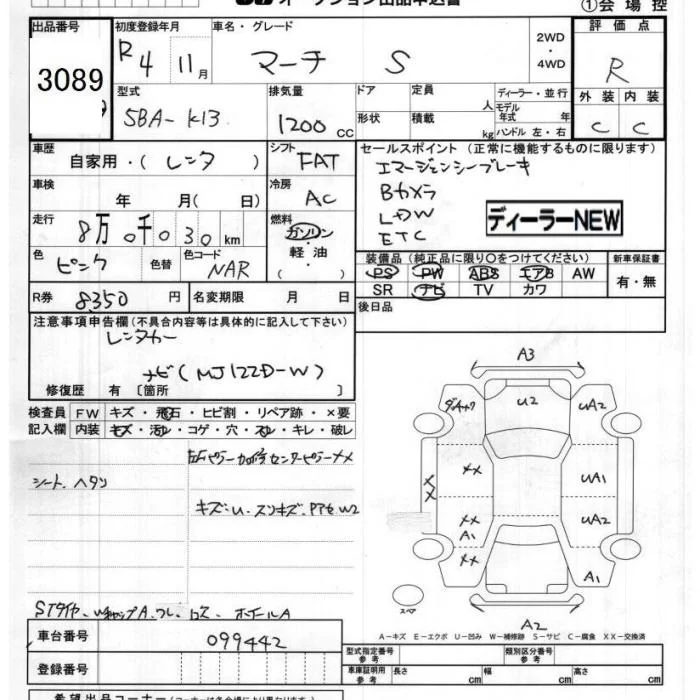 ①会場控
出品番号 初度登録年月 車名・グレード 評価点
3089 R4 11月 マーチ S 2WD・4WD R
型式 排気量 ドア 定員 人 ディーラー・並行 外装 内装
5BA-K13 1200cc 形状 積載 kg モデル年式 年 ハンドル 左・右 C C
車歴 自家用・(レンタ) シフト FAT セールスポイント(正常に機能するものに限ります)
エマージェンシーブレーキ
車検 年 月(日) 冷房 AC Bカメラ
LDW
ETC
ディーラーNEW
走行 8万0千030km 燃料 ガソリン・軽油・( )
色 ピンク 色替 色コード NAR
装備品(純正品に限り○をつけてください) 新車保証書
PS PW ABS エアB AW 有・無
SR ナビ TV カワ
R券 8350円 名変期限 月 日 後日品
注意事項申告欄(不具合内容等は具体的に記入して下さい)
レンタカー
ナビ(MJ122D-W)
修復歴 有〔箇所 〕
検査員記入欄 FW キズ・飛石・ヒビ割・リペア跡・×要
内装 キズ・汚レ・コゲ・穴・スレ・キレ・破レ
シート、ヘタリ
キズ・U、スリキズ、
A3
U2
UA2
XX
XX
UA1
XX
A1
UA2
XX
A1
スペア
A2
A-キズ E-エクボ U-凹み W-補修跡 S-サビ C-腐食 XX-交換済
車台番号 099442
登録番号
型式指定番号 参考 類別区分番号 参考
車庫証明用 参考 長さ cm 幅 cm 高さ cm
希望出品コーナー